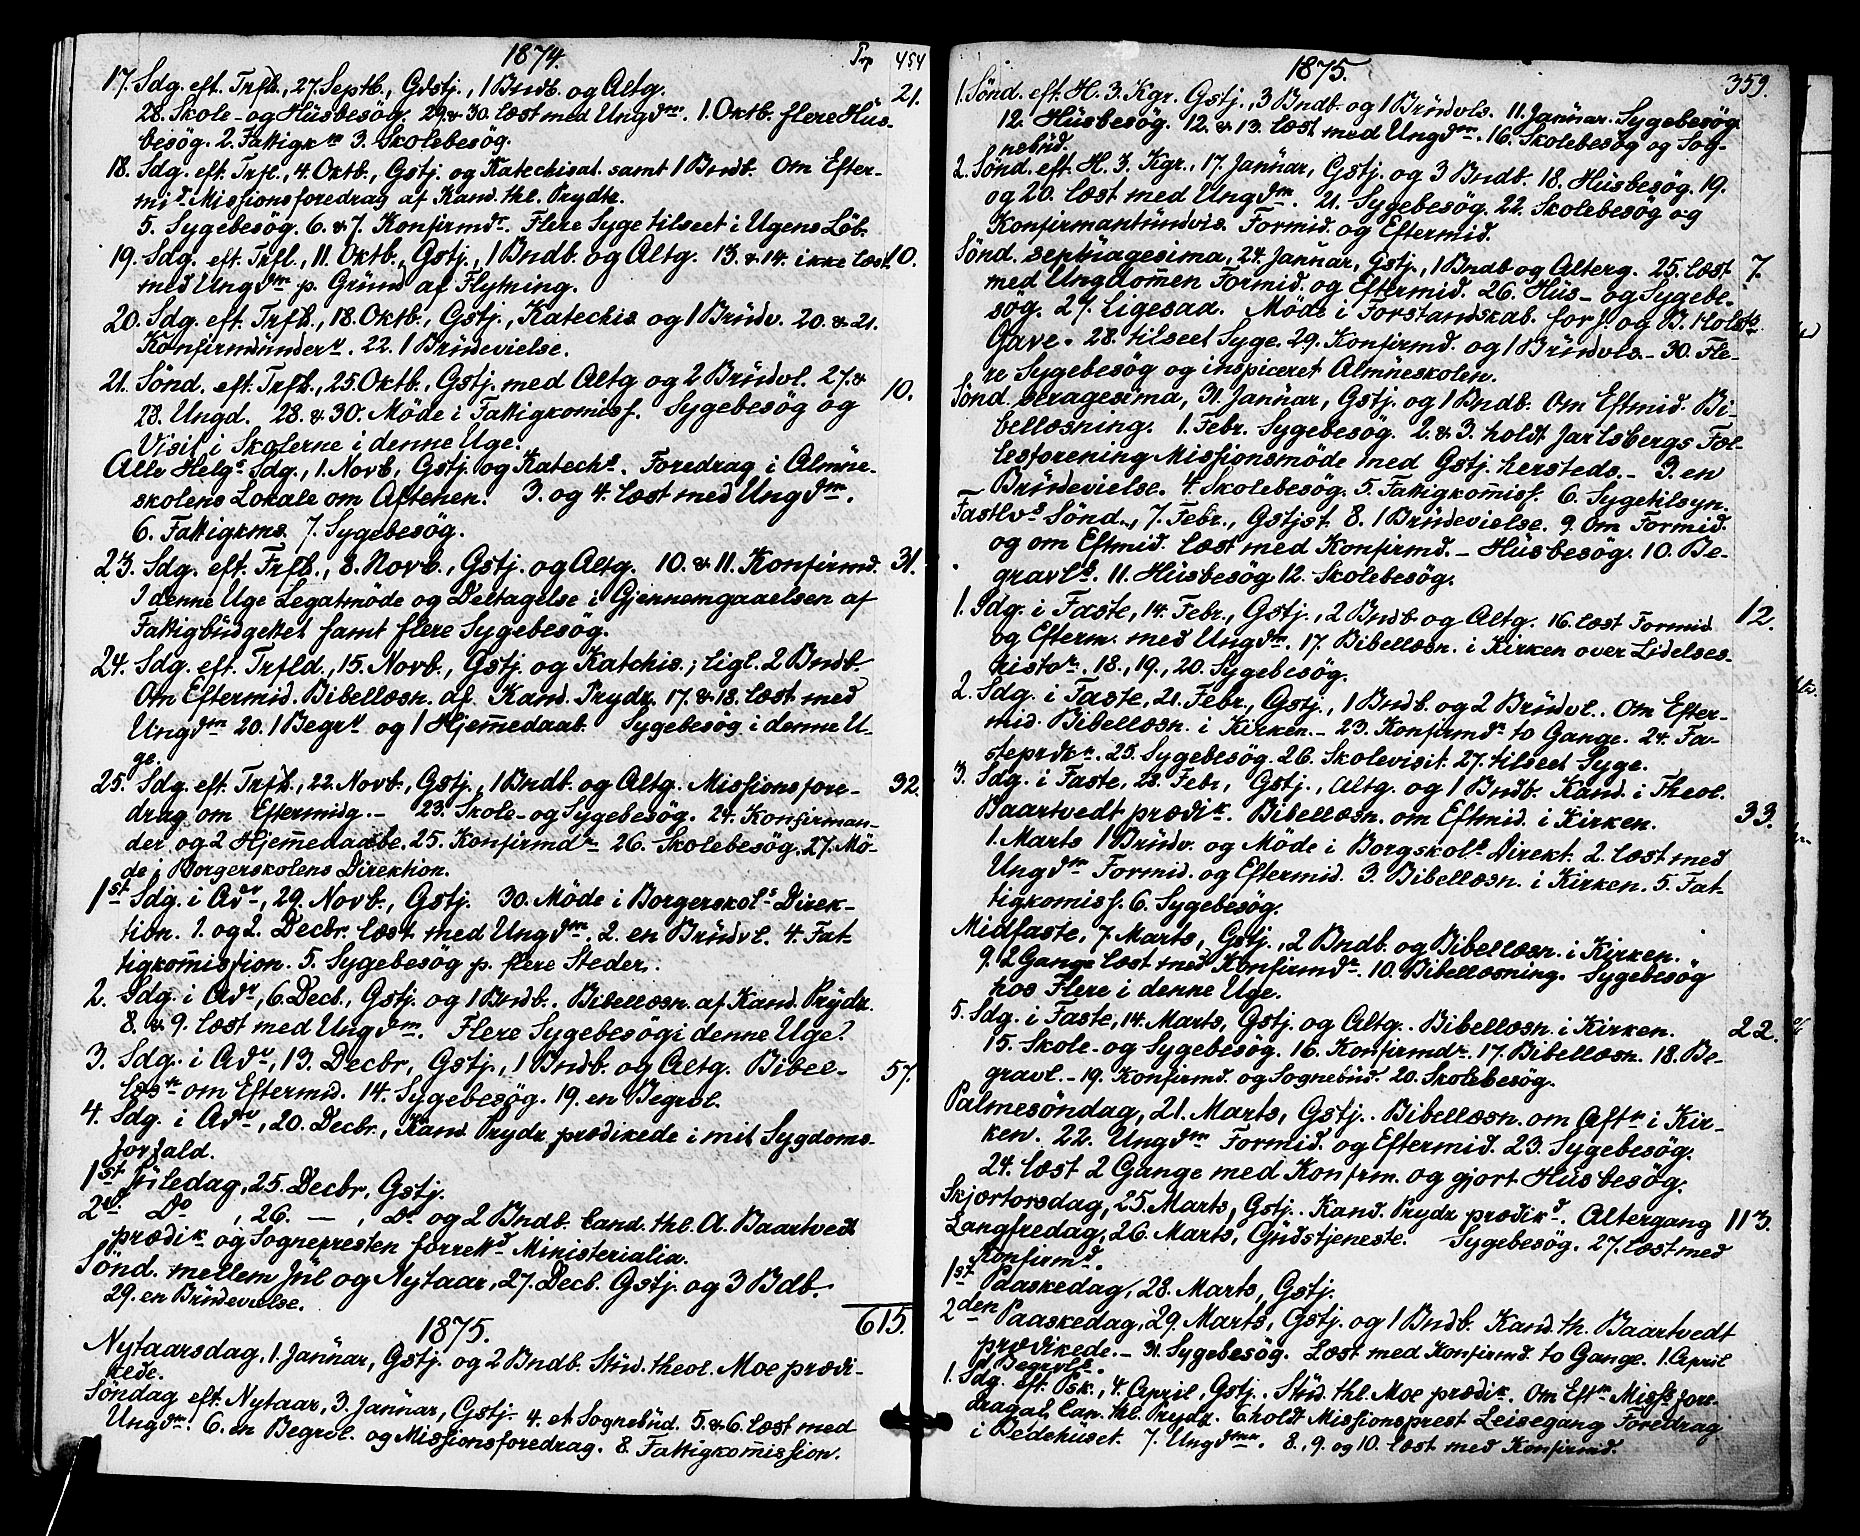 1874. Trp 454
17. Sdg. eft. Trfb., 27. Septb., Gdstj., 1 Bndb. og Altg. 21.
28. Skole- og Húsbesøg. 29. & 30. læst med Ungdm. 1. Oktb. flere Hús-
besøg. 2. Fattigk 3. Skolebesøg.
18. Sdg. eft. Trfl., 4. Oktb., Gstj. og Katechisat. samt 1 Bndb. Om Efter-
mid Missionsforedrag af Kand. thl. Prydtz.
5. Sygebesøg. 6. & 7. Konfirmdr. Flere Syge tilseet i Ugens Løb.
19. Sdg. eft. Trfl., 11. Oktb., Gstj., 1 Bndb. og Altg. 13. & 14. ikke læst 10.
med Ungdm p. Grúnd af Flytning.
20. Sdg. eft. Trfb., 18. Oktb., Gstj., Katechis. og 1 Brúdv. 20. & 21.
Konfirmúnderv. 22. 1 Brúdevielse.
21. Sønd. eft. Trfb., 25. Oktb., Gstj. med Altg og 2 Brúdvl. 27. & 10.
28. Ungd. 28. & 30. Møde i Fattigkomiss. Sygebesøg og
Visit i Skolerne i denne Uge.
Alle Helgs Sdg., 1. Novb., Gstj. og Katechs. Foredrag i Almúe-
skolens Lokale om Aftenen. 3. og 4. læst med Ungdm.
6. Fattigkms. 7. Sygebesøg.
23. Sdg. eft. Trfb., 8. Novb., Gstj. og Altg. 10. & 11. Konfirmd. 31.
I denne Uge Legatmøde og Deltagelse i Gjennemgaaelsen af
Fattigbúdgettet samt flere Sygebesøg.
24. Sdg. eft. Trfld., 15. Novb., Gstj. og Katchis.; ligl. 2 Bndb.
Om Eftermid. Bibellæsn. af Kand. Prydz. 17. & 18. læst med
Ungdm 20. 1 Begrv og 1 Hjem̅edaab. Sygebesøg i denne U-
ge.
25. Sdg. eft. Trfb., 22. Novb., Gstj., 1 Bndb. og Altg. Missionsfore- 32.
drag om Eftermidg. — 23. Skole- og Sygebesøg. 24. Konfirman-
der og 2 Hjem̅edaabe. 25. Konfirmdr 26. Skolebesøg. 27. Mø-
de i Borgerskolens Direktion.
1st Sdg. i Adv, 29. Novb., Gstj. 30. Møde i Borgerskols Direk-
tion. 1. og 2. Decbr. læst med Ungdm. 2. en Brúdvl. 4. Fat-
tigkom̅ission. 5. Sygebesøg p. flere Steder.
2. Sdg. i Adv, 6. Decb., Gstj. og 1 Bndb. Bibellæsn. af Kand. Prydz.
8. & 9. læst med Ungdm. Flere Sygebesøg i denne Uge.
3. Sdg. i Adv, 13. Decbr, Gstj., 1 Bndb. og Altg. Bibel- 57.
læsn om Eftermid. 14. Sygebesøg. 19. en Begrvl.
4. Sdg. i Adv, 20. Decbr., Kand. Prydz prædikede i mit Sygdoms-
forfald.
1st Júledag, 25. Decbr, Gstj.
2d. Do, 26. — , Do og 2 Bndb. Cand. thl. A. Baartvedt
prædik og Sognepresten forrettd Ministerialia.
Sønd. mellem Júl og Nytaar, 27. Decb. Gstj. og 3 Bdb.
29. en Brúdevielse. 615.
1875.
Nytaarsdag, 1. Janúar, Gstj. og 2 Bndb. Stúd. theol. Moe prædi-
kede.
Søndag eft. Nytaar, 3. Janúar, Gstj. 4. et Sognebúd. 5. & 6. læst med
Ungdm. 6. en Begrvl. og Missionsforedrag. 8. Fattigkom̅ission.
1875. 359.
1. Sønd. eft. H. 3. Kgr. Gstj., 3 Bndb. og 1 Brúdvls. 11. Janúar. Sygebesøg
12. Húsbesøg. 12. & 13. læst med Ungdm. 16. Skolebesøg og Sog-
nebúd.
2. Sønd. eft. H. 3. Kgr., 17. Janúar, Gstj. og 3 Bndb. 18. Húsbesøg. 19.
og 20. læst med Ungdm. 21. Sygebesøg. 22. Skolebesøg og
Konfirmantúndvis. Formid. og Eftermid.
Sønd. septúagesima, 24. Janúar, Gstj., 1 Bndb og Alterg. 25. læst 7.
med Ungdom̅en Formid. og Eftermid. 26. Hús- og Sygebe-
søg. 27. Ligesaa. Møde i Forstandskab. for J. og B. Holsts
Gave. 28. tilseet Syge. 29. Konfirmd. og 1 Brúdvls. — 30. Fle-
re Sygebesøg og inspiceret Almúeskolen.
Sønd. sexagesima, 31. Janúar, Gstj. og 1 Bndb. Om Eftmid. Bi-
bellæsning. 1. Febr. Sygebesøg. 2. & 3. holdt Jarlsbergs Fæl-
lesforening Missionsmøde med Gstj. hersteds. — 3. en
Brúdevielse. 4. Skolebesøg. 5. Fattigkom̅iss. 6. Sygetilsyn.
Fastlvs Sønd., 7. Febr., Gstjst. 8. 1 Brúdevielse. 9. Om Formid.
og om Eftmid. læst med Konfirmd. — Húsbesøg. 10. Be-
gravls. 11. Húsbesøg 12. Skolebesøg.
1. Sdg. i Faste, 14. Febr., Gstj., 2 Bndb og Altg. 16. læst Formid 12.
og Efterm. med Ungdm. 17. Bibellæsn. i Kirken over Lidelses-
histor. 18., 19., 20. Sygebesøg.
2. Sdg. i Faste, 21. Febr., Gstj., 1 Bndb. og 2 Brúdvl. Om Efter-
mid. Bibellæsn. i Kirken. — 23. Konfirmdr to Gange. 24. Fa-
steprdkn. 25. Sygebesøg. 26. Skolevisit. 27. tilseet Syge.
3. Sdg. i Faste, 28. Febr, Gstj., Altg. og 1 Bndb. Kand. i Theol.
Baartvedt prædik. Bibellæsn. om Eftmid. i Kirken. 33.
1. Marts 1 Brúdv. og Møde i Borgskols Direkt. 2. læst med
Ungdm Formid. og Eftermid. 3. Bibellæsn. i Kirken. 5. Fat-
tigkomiss. 6. Sygebesøg.
Midfaste, 7. Marts, Gstj., 2 Bndb. og Bibellæsn. i Kirken.
9. 2 Gange læst med Konfirmdr. 10. Bibellæsning. Sygebesøg
hos Flere i denne Uge.
5. Sdg. i Faste, 14. Marts, Gstj. og Altg. Bibellæsn. i Kirken. 22.
15. Skole- og Sygebesøg. 16. Konfirmdr. 17. Bibellæsn. 18. Be-
gravl. — 19. Konfirmd. og Sognebúd. 20. Skolebesøg.
Palmesøndag, 21. Marts, Gstj. Bibellæsn. om Aftn i Kir-
ken. 22. Ungdm Formid. og Eftermid. 23. Sygebesøg.
24. læst 2 Gange med Konfrm. og gjort Húsbesøg.
Skjærtorsdag, 25. Marts, Gstj. Kand. Prydz prædikd. Altergang 113.
Langfredag, 26. Marts, Gúdstjeneste. Sygebesøg. 27. læst med
Konfirmd.
1st Paaskedag, 28. Marts, Gstj.
2den Paaskedag, 29. Marts, Gstj. og 1 Bndb. Kand. th. Baartvedt
prædikede. — 31. Sygebesøg. Læst med Konfirmd. to Gange. 1. April
1 Begrvls.
1. Sdg. eft. Psk., 4. April, Gstj. Stúd. thl. Moe prædik. Om Eftm Misss fore-
drag af Can. thl. Prydz. 6 holdt Missionsprest Leisegang Foredrag
i Bedehuset. 7. Ungdmn. 8., 9. og 10. læst med Konfirmd.